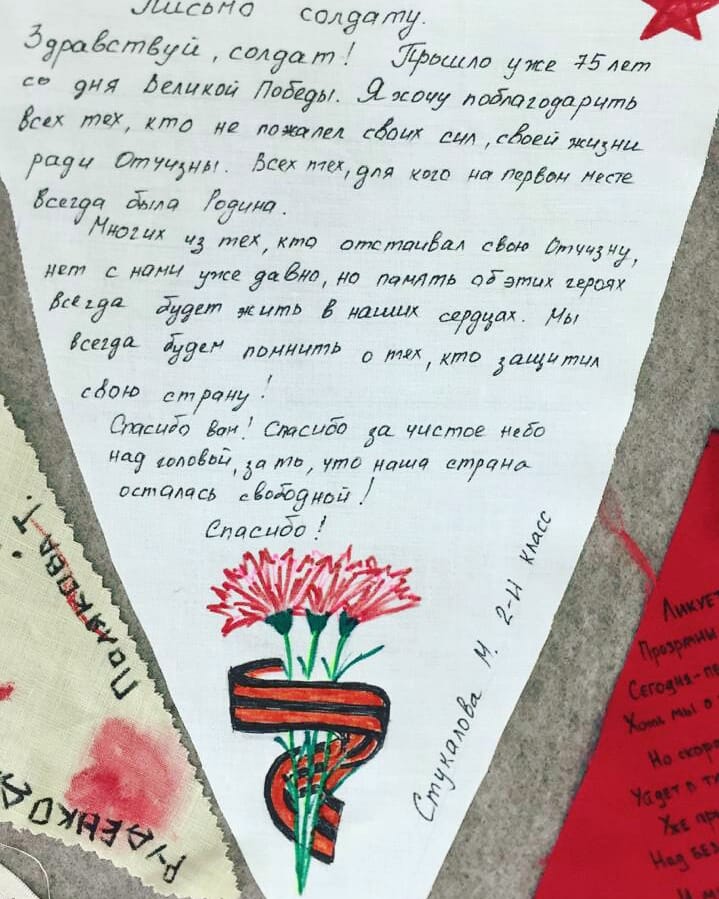 Письмо солдату.
Здравствуй, солдат! Прошло уже 75 лет
со дня Великой Победы. Я хочу поблагодарить
всех тех, кто не пожалел своих сил, своей жизни
ради Отчизны. Всех тех, для кого на первом месте
всегда была Родина.
Многих из тех, кто отстаивал свою Отчизну,
нет с нами уже давно, но память об этих героях
всегда будет жить в наших сердцах. Мы
всегда будем помнить о тех, кто защитил
свою страну!
Спасибо Вам! Спасибо за чистое небо
над головой, за то, что наша страна
осталась свободной!
Спасибо!
Стукалова М. 2-И класс
Полякова Т.
Руденко
Ликует
Прозрачны
Сегодня-
Хоть мы о
Но скоро
Уйдет в
Уже
Над без